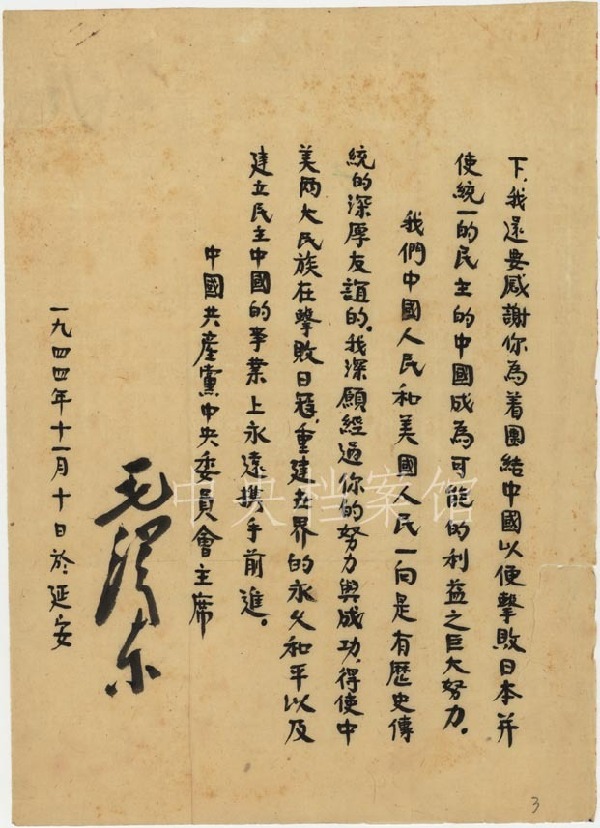 下，我還要感謝你為着團結中國以便擊敗日本并
使統一的民主的中國成為可能的利益之巨大努力。
我們中國人民和美國人民一向是有歷史傳
統的深厚友誼的。我深願經過你的努力與成功，得使中
美兩大民族在擊敗日寇，重建世界的永久和平以及
建立民主中國的事業上永遠攜手前進。
中國共產黨中央委員會主席
毛澤东
一九四四年十一月十日於延安
中央档案馆
3